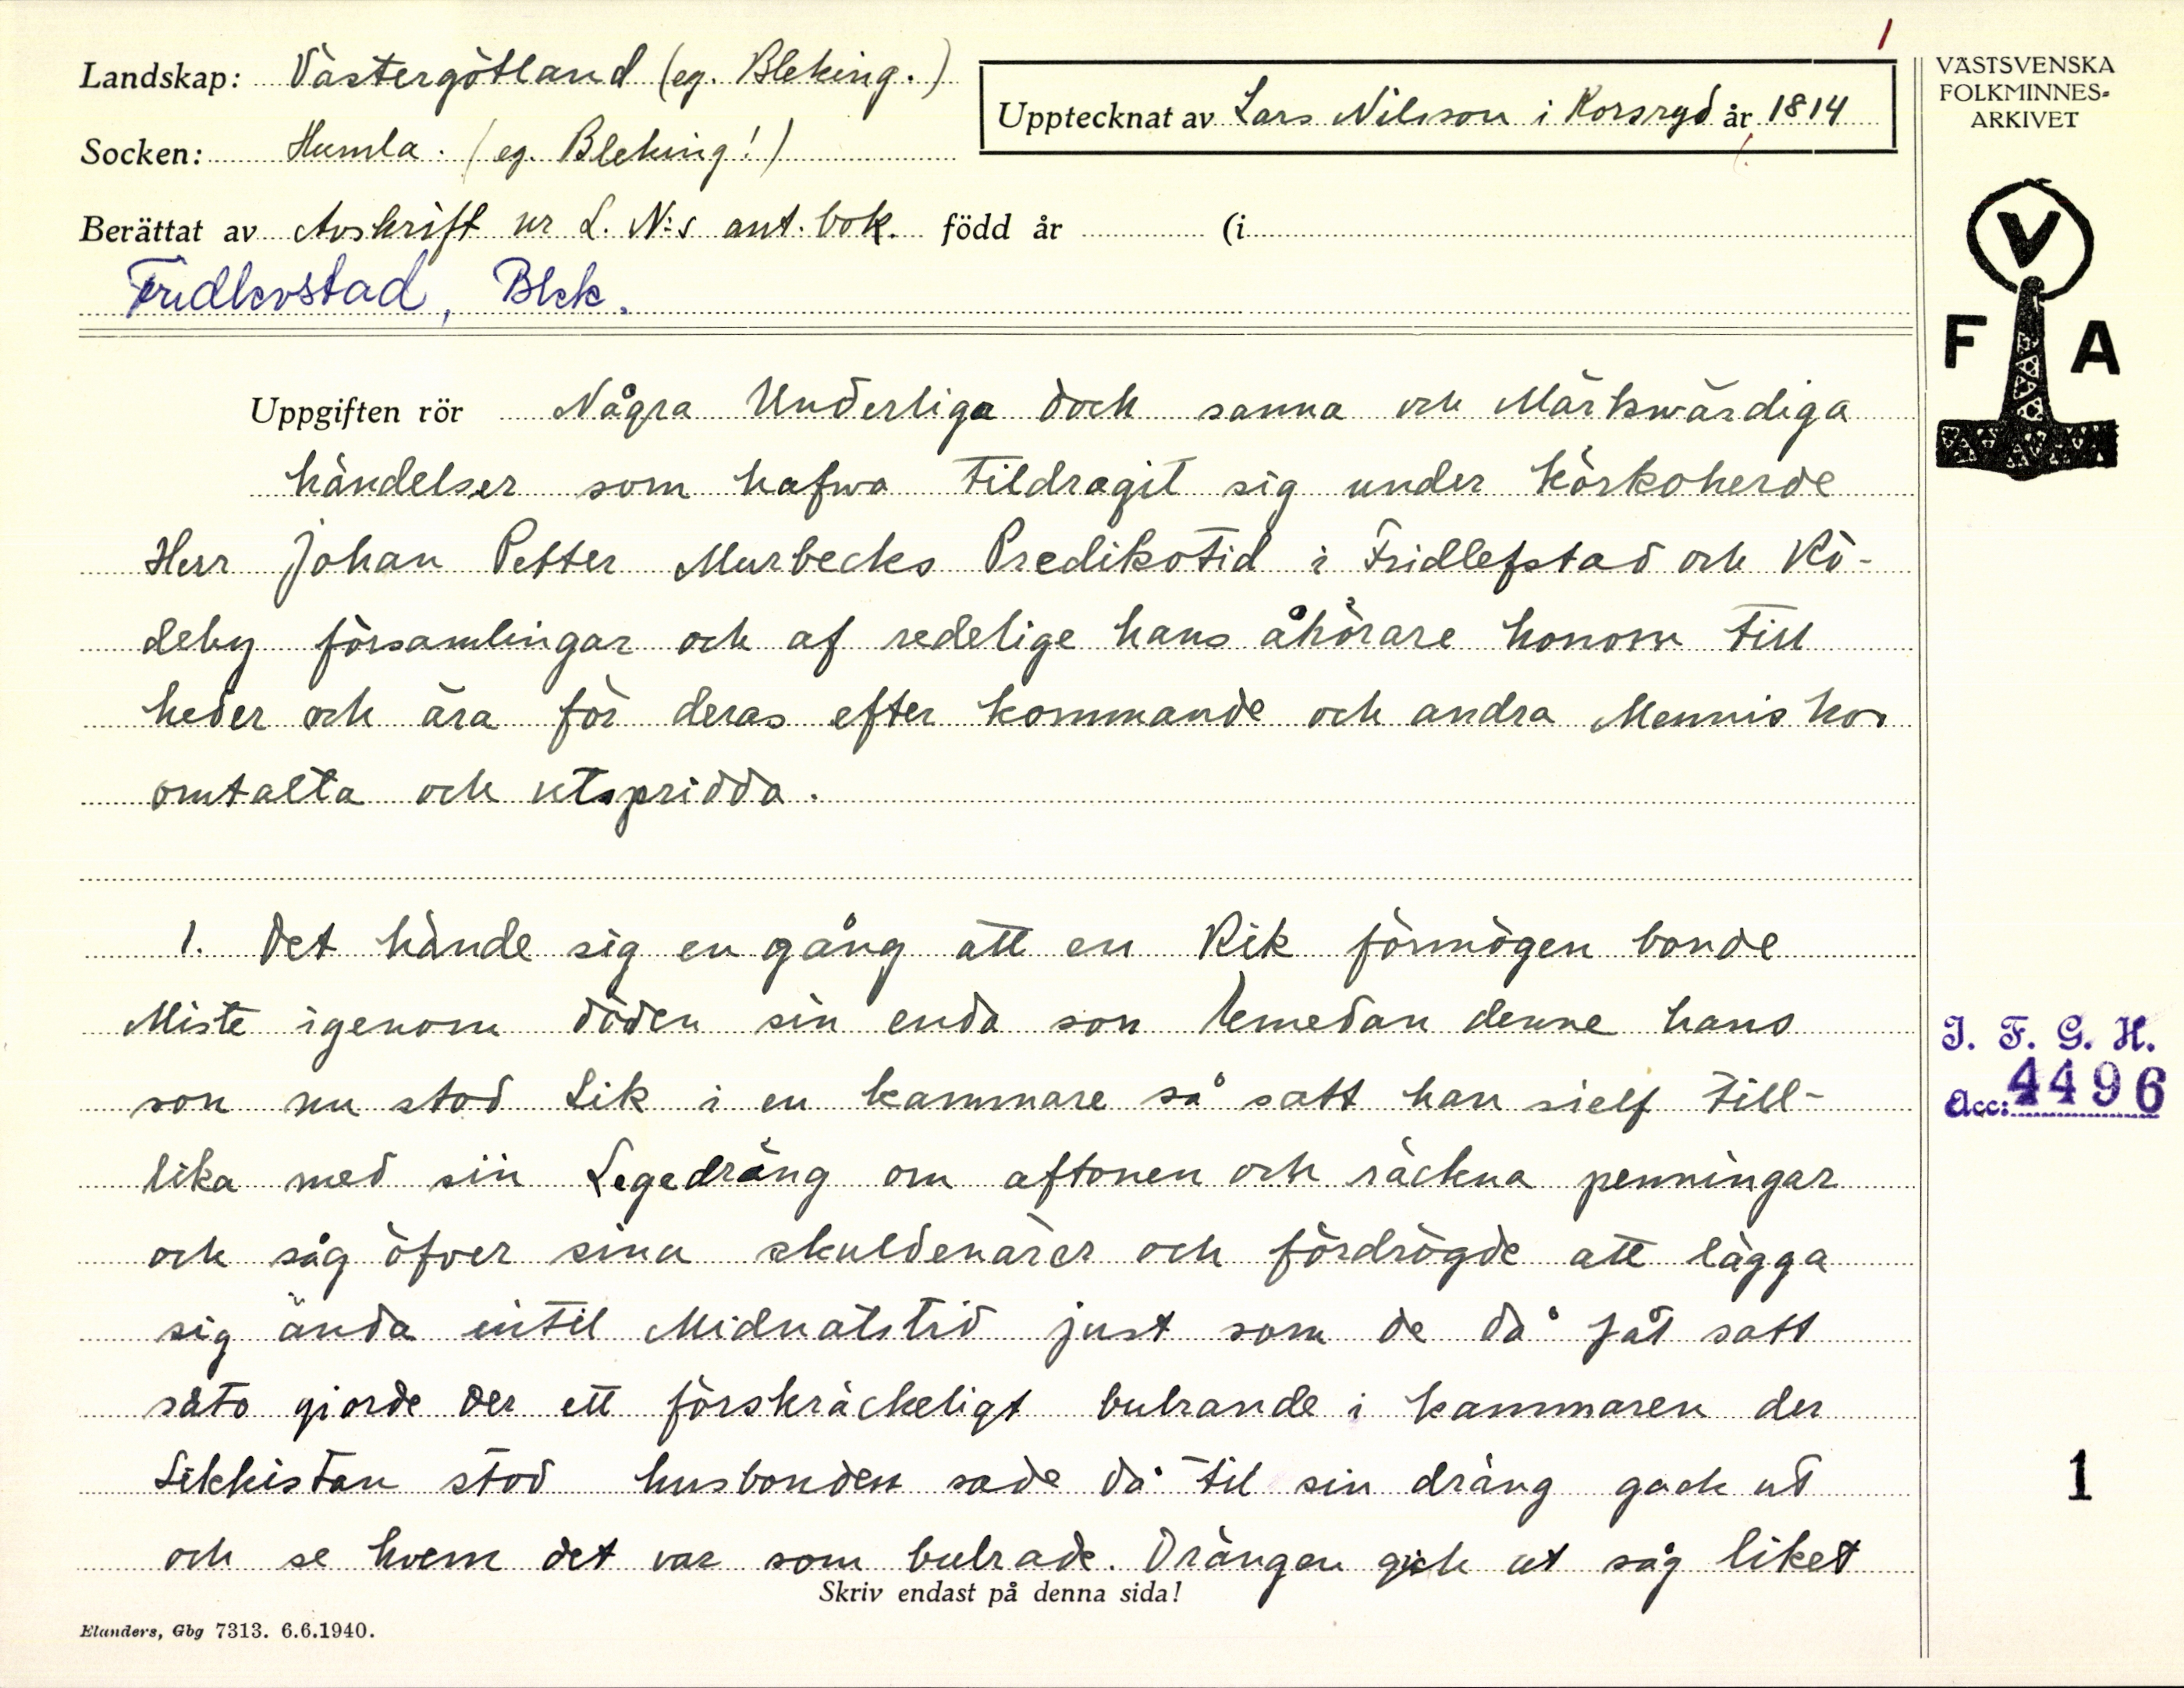 1
Landskap: Västergötland (eg. Bleking.)
Socken: Humla. (eg. Bleking!)
Upptecknat av Lars Nilsson i Korsryd år 1814
Berättat av Avskrift ur L. N:s ant. bok. född år (i
Fridlevstad, Blek.
VÄSTSVENSKA
FOLKMINNES-
ARKIVET
V
F A
Uppgiften rör Några Underliga doch sanna och Märkwärdiga
händelser som hafwa tildragit sig under Körkoherde
Herr Johan Petter Murbecks Predikotid i Fridlefstad och Rö-
deby församlingar och af redelige hans åhörare honom till
heder och ära för deras efter kommande och andra Menniskor
omtalta och utspridda.
1. Det hände sig en gång att en Rik förmögen bonde
Miste igenom döden sin enda son Temedan denne hans
son nu stod Lik i en kammare så satt han sielf till-
lika med sin Legedräng om aftonen och räckna penningar
och såg öfver sina skuldenärer och fördrögde att lägga
sig ända intil Midnatstid just som de då på't satt
såto giorde der ett förskräckeligt bulrande i kammaren der
Likkistan stod husbonden sade då til sin dräng gack ut
och se hvem det var som bulrade. Drängen gick ut såg liket
I. F. G. H.
Acc: 4496
1
Skriv endast på denna sida!
Elanders, Gbg 7313. 6.6.1940.